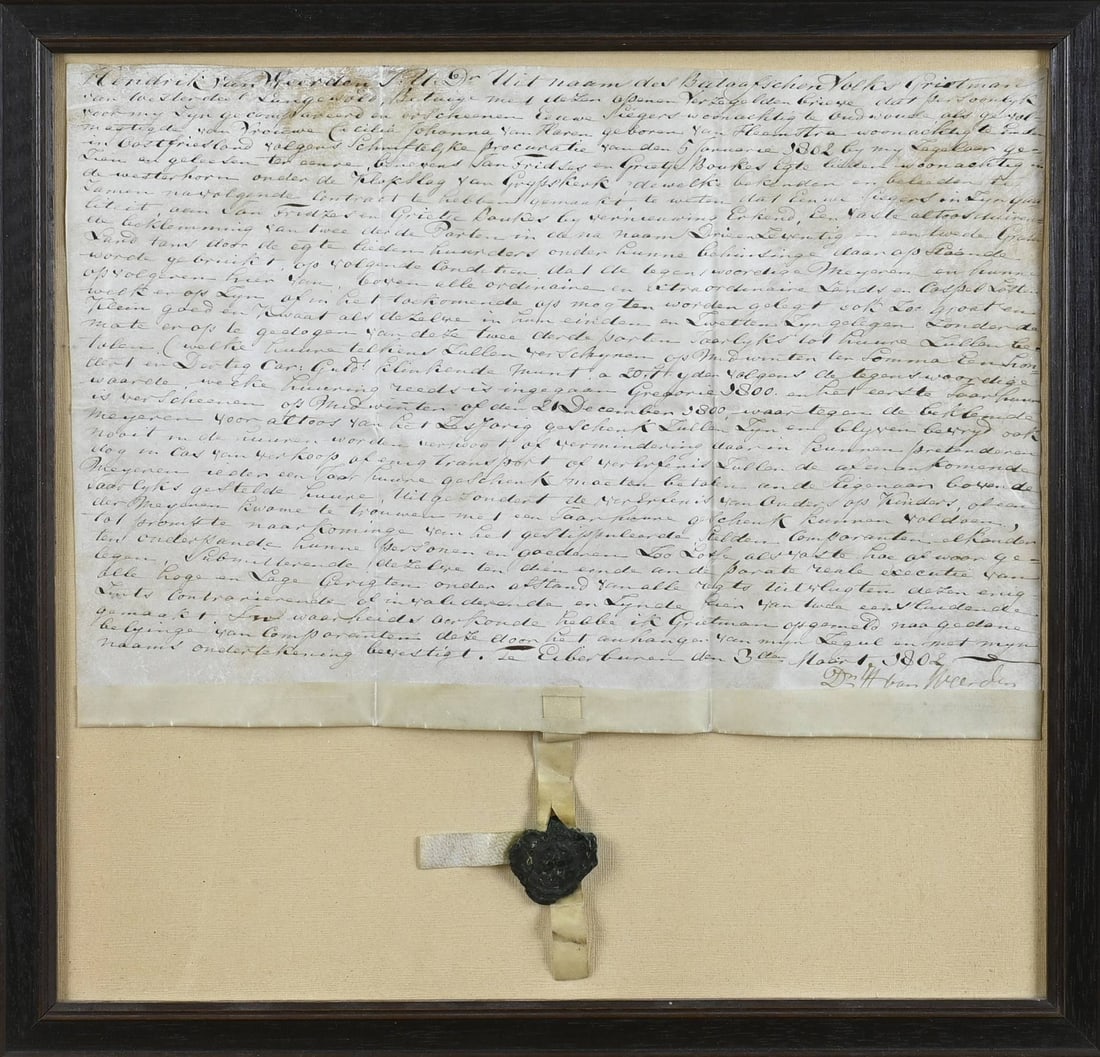 Hendrik van Weerden J. U. Dr Uit naam des Bataafschen Volks Grietman
van Westerdeel Langewold Betuige met dezen openen verzegelden brieve dat persoonlyk
voor my zyn gecompareerd en erscheenen Eeuwe Siegers woonachtig te Oudwoude als gevol-
magtigde van Vrouwe Cecilia Johanna van Haren geboren van Heemstra woonachtig te
in Oostfriesland volgens schriftelyke procuratie van den 5 Januarie 1802 by my zegelaar ge-
zien en geleesen ter eenre, benevens Jan Fridzes en Grietje Boukes Egte lieden woonachtig in
de westerhorn onder de klokslag van Grypskerk, dewelke bekenden en beleeden te
zamen navolgende contract te hebben gemaakt, te weten dat Eeuwe Siegers in zyn qua-
liteit aen Jan Fridzes en Grietje Boukes by vernieuwing Erkend, Een vaste altoosduuren-
de beklemming van twee derde Parten in de na naam Drie en Zeventig en een tweede Grasen
Land tans door de egte lieden huurders onder hunne behuisinge daar op staande
worde gebruikt, op volgende Conditien, dat de tegenswoordige Meyeren en hunne
opvolgeren hier van, boven alle ordinaire en extraordinaire Lands en Caspel Lasten
welk er op zyn, of in het toekomende op mogten worden gelegt ook zoo groot en
klein goed en kwaat als dezelve in hun einden en zwetten zyn gelegen zonder de
mate er op te gedogen van deze twee derde parten jaarlyks tot huure zullen be-
talen (welke huure telkens zullen verschynen op Midwinter ter somma Een hon-
dert en Dertig Car: Guld: klinkende munt a 20 st yder volgens de tegenswoordige
waarde, welke huuring reeds is ingegaan Gregorie 1800 en het eerste Jaar huur
is verscheenen op Midwinter of den 21 December 1800, waar tegen de beklemde
meyeren voor altoos van het Zesjarig geschenk zullen zyn en blyven bevryd, ook
nooit in de huuren worden verhoogt of vermindering daar in kunnen pretenderen
dog in cas van verkoop of enig transport of verErfenis zullen de af en aankomende
Meyeren ieder een Jaar huure geschenk moeten betalen aan de Eigenaar boven de
Jaarlyks gestelde huure, Uitgezondert de verErfenis van Ouders op Kinders, of een
der Meyeren kwame te trouwen met een Jaar huure geschenk kunnen voldoen,
tot promte naarkominge van het gestippuleerde stelden Comparanten elkander
ten onderpande hunne personen en goederen zoo losse als vaste hoe of waar ge-
legen, Submitterende dezelve ten dien einde an de parate reale executie van
alle hoge en Lage Gerigten onder afstand van alle regts uitvlugten dezen enig-
zints contrarieerende of invaliderende en zynde hier van twee eensluidende
gemaakt. In waarheids oirkonde hebbe ik Grietman opgemeld naa gedane
belyinge van Comparanten deze door het anhangen van myn Zegul en met myn
naams ondertekening bevestigt. Te Eiberburen den 3den Maart 1802
Dr H van Weerden